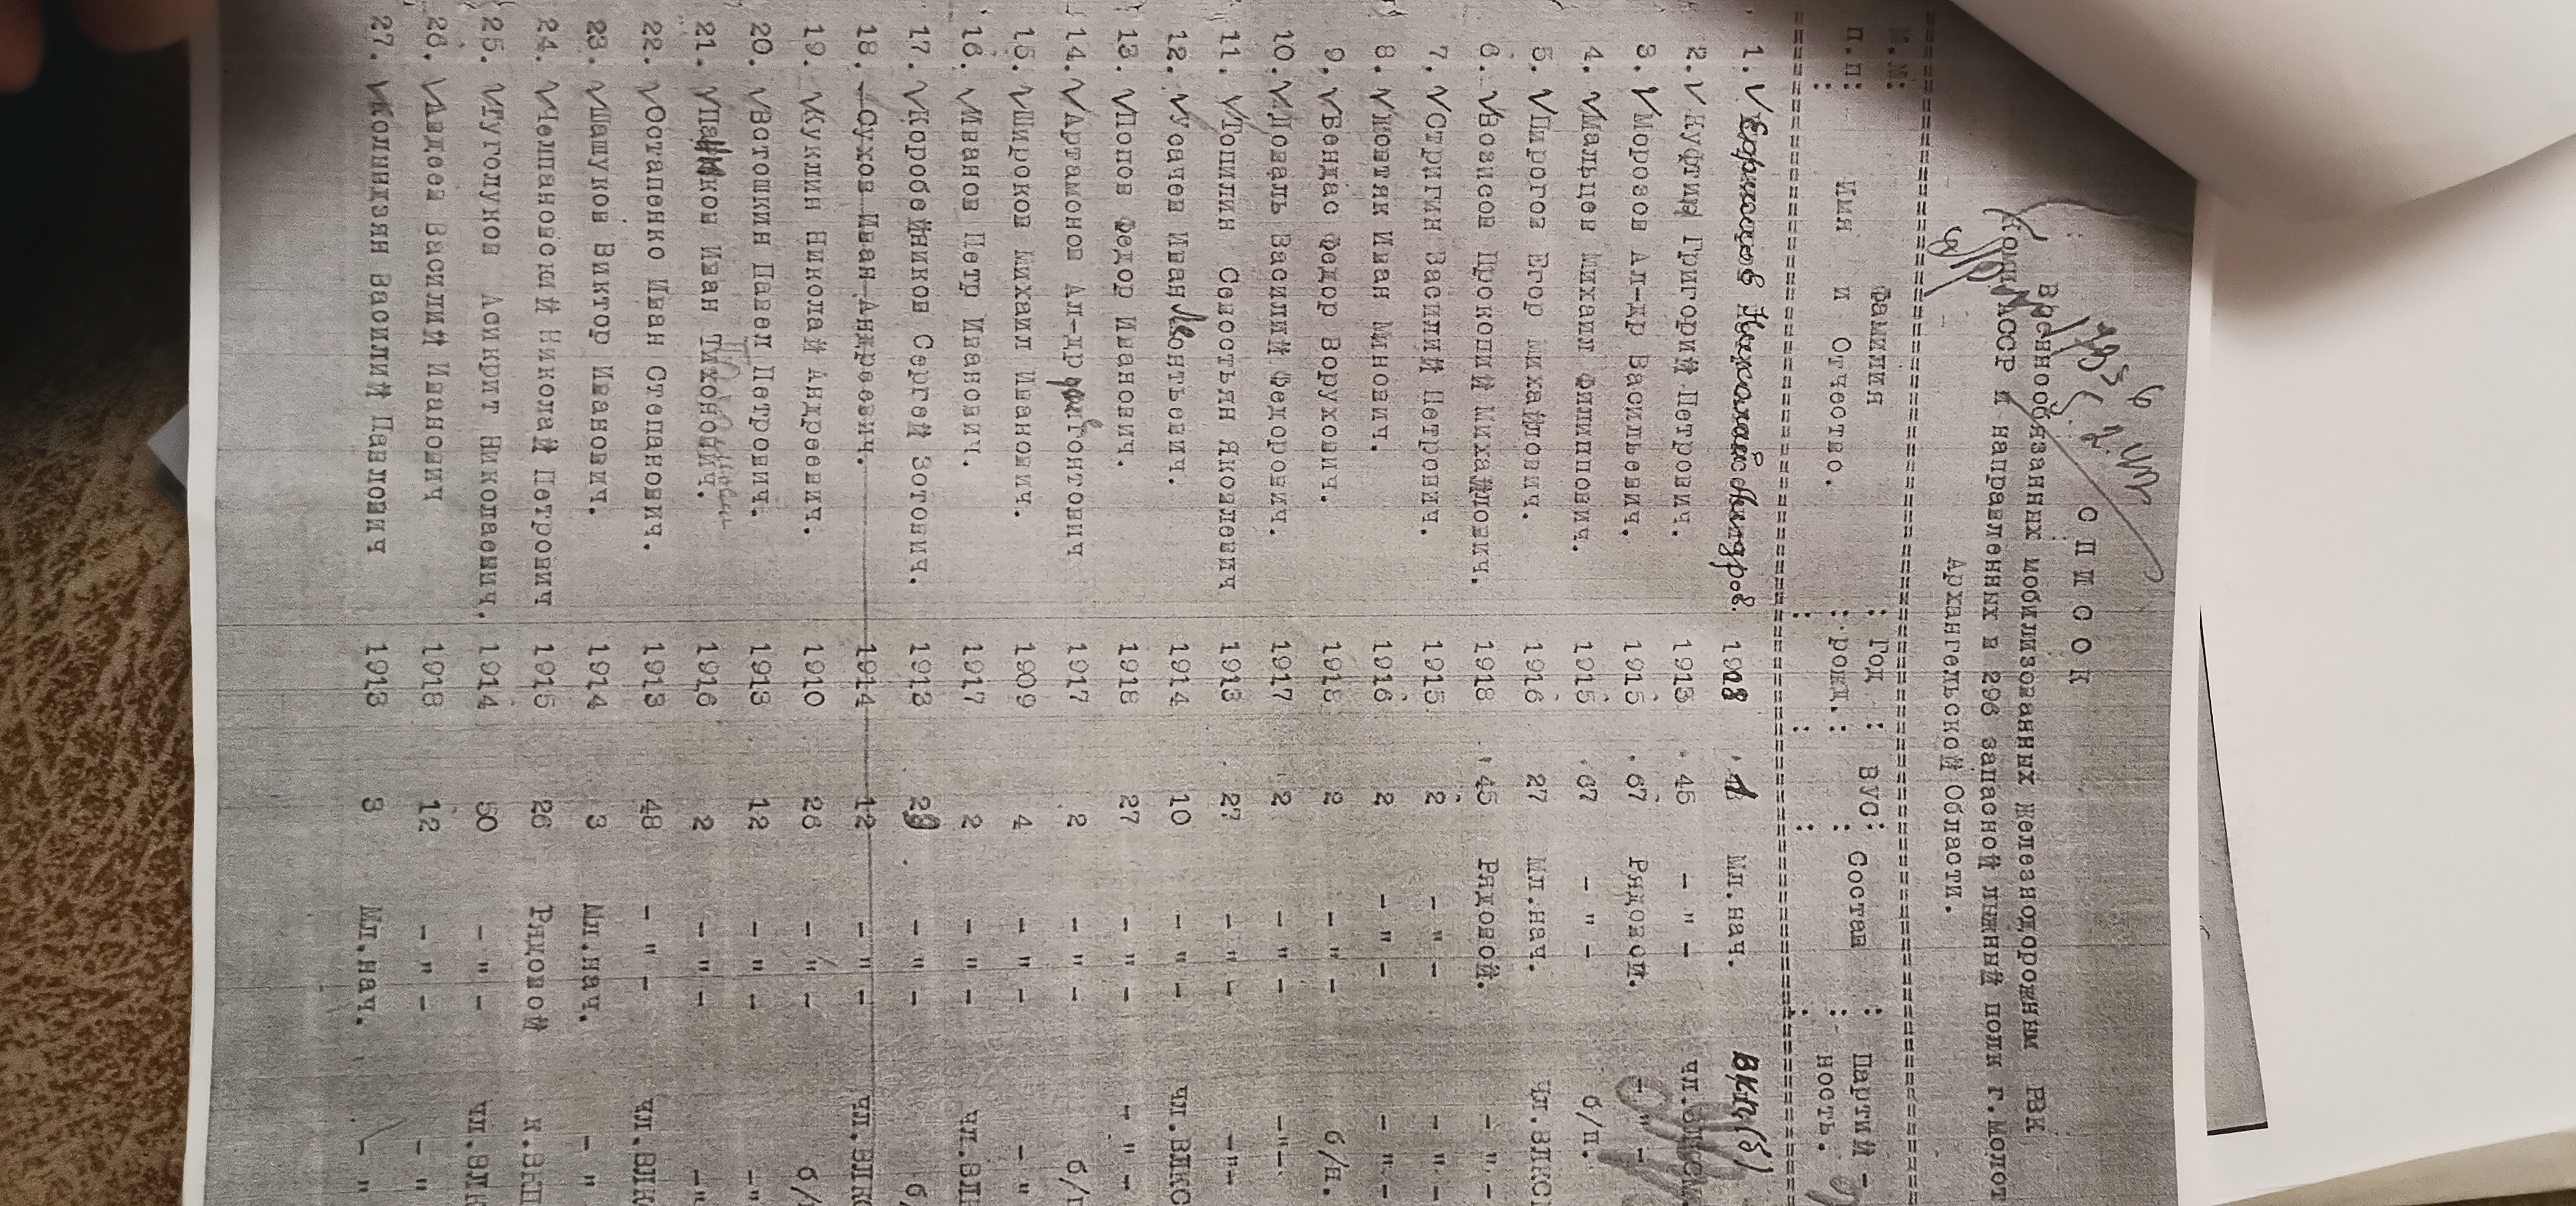 СПИСОК
Военнообязанных мобилизованных Железнодорожным РВК
Коми АССР и направленных в 296 запасной лыжный полк г.Молот
Архангельской Области.
№.№: Фамилия : Год : ВУС: Состав : Партий-
п.п: Имя и Отчество. : рожд. : : : ность.
1. Ефимов Николай Андреев. 1908 1 Мл.нач. ВКП(б)
2. Куфтин Григорий Петрович. 1913 45 -"- чл.ВЛКСМ.
3. Морозов Ал-др Васильевич. 1915 67 Рядовой. -"-
4. Мальцев Михаил Филиппович. 1915 67 -"- б/п.
5. Пирогов Егор Михайлович. 1916 27 Мл.нач. Чл.ВЛКС
6. Возисов Прокопий Михайлович. 1918 45 Рядовой. -"-
7. Стригин Василий Петрович. 1915 2 -"- -"-
8. Иван Минович. 1916 2 -"- -"-
9. Бендас Федор Борухович. 1918 2 -"- б/п.
10. Довель Василий Федорович. 1917 2 -"- -"-
11. Топилин Севостьян Яковлевич 1913 27 -"- -"-
12. Усачев Иван Леонтьевич. 1914 10 -"- чл.ВЛКС
13. Попов Федор Иванович. 1918 27 -"- -"-
14. Артамонов Ал-др Ферапонтович 1917 2 -"- б/п
15. Широков Михаил Иванович. 1909 4 -"- -"
16. Иванов Петр Иванович. 1917 2 -"- чл.ВЛК
17. Коробейников Сергей Зотович. 1913 29 -"- б/
18. Сухов Иван Андреевич. 1914 12 -"- чл.ВЛК
19. Куклин Николай Андреевич. 1910 26 -"- б/п
20. Вотошкин Павел Петрович. 1913 12 -"- -"
21. Иван Тихонович. 1916 2 -"- -"
22. Остапенко Иван Степанович. 1913 48 -"- чл.ВЛК
23. Машуков Виктор Иванович. 1914 3 Мл.нач. -"
24. Челпановский Николай Петрович 1915 26 Рядовой к.ВКП
25. Туголуков Асикрит Николаевич. 1914 50 -"- чл.ВЛК
26. Авдеев Василий Иванович 1918 12 -"- -"
27. Колиндзян Василий Павлович 1913 3 Мл.нач. -"